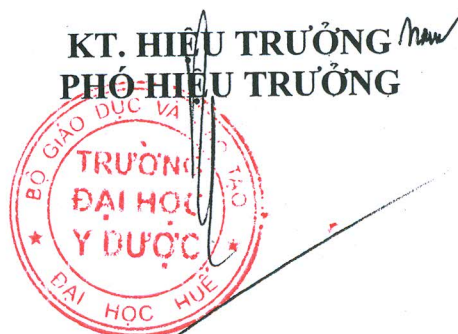 KT. HIỆU TRƯỞNG
PHÓ HIỆU TRƯỞNG
BỘ GIÁO DỤC VÀ TẠO
TRƯỜNG
ĐẠI HỌC
Y DƯỢC
ĐẠI HỌC HUẾ